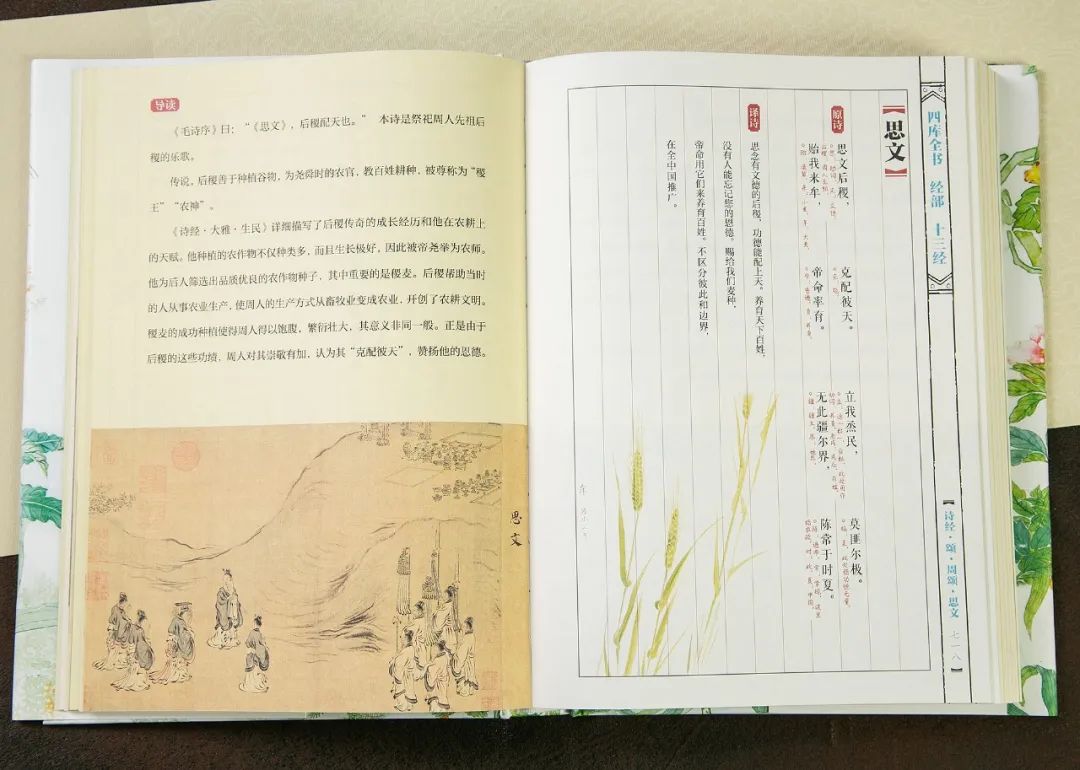 导读
《毛诗序》曰：“《思文》，后稷配天也。”　本诗是祭祀周人先祖后
稷的乐歌。
传说，后稷善于种植谷物，为尧舜时的农官，教百姓耕种，被尊称为“稷
王”“农神”。
《诗经·大雅·生民》详细描写了后稷传奇的成长经历和他在农耕上
的天赋。他种植的农作物不仅种类多，而且生长极好，因此被帝尧举为农师。
他为后人筛选出品质优良的农作物种子，其中重要的是稷麦。后稷帮助当时
的人从事农业生产，使周人的生产方式从畜牧业变成农业，开创了农耕文明。
稷麦的成功种植使得周人得以饱腹，繁衍壮大，其意义非同一般。正是由于
后稷的这些功绩，周人对其崇敬有加，认为其“克配彼天”，赞扬他的恩德。
思文
四库全书　经部　十三经
【诗经·颂·周颂·思文　七一八】
【思文】
原诗
思文后稷，克配彼天。立我烝民，莫匪尔极。
贻我来牟，帝命率育。无此疆尔界，陈常于时夏。
译诗
思念有文德的后稷，功德能配上天。养育天下百姓，
没有人能忘记您的恩德。赐给我们麦种，
帝命用它们来养育百姓。不区分彼此和边界，
在全中国推广。